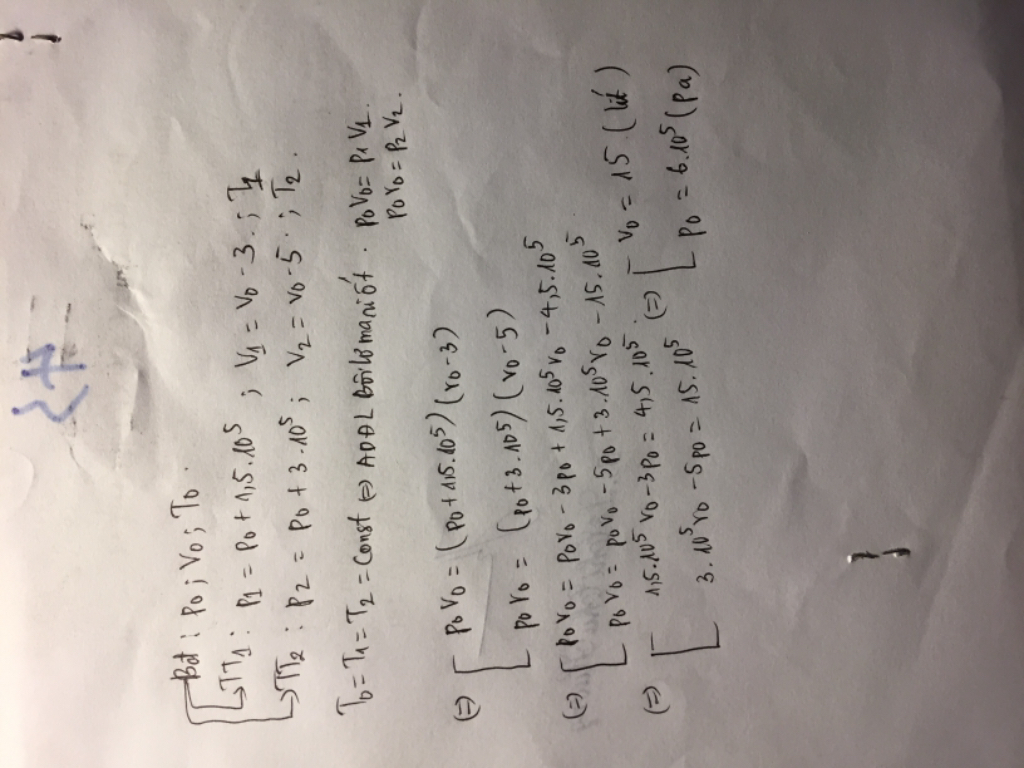 Bđ : p0 ; V0 ; T0.
TT1 : p1 = p0 + 1,5.10^5 ; V1 = V0 - 3 ; T1
TT2 : p2 = p0 + 3.10^5 ; V2 = V0 - 5 ; T2.
T0 = T1 = T2 = Const => ADĐL Bôilơ maniốt. p0V0 = p1V1.
p0V0 = p2V2.
(=) [ p0V0 = (p0 + 1,5.10^5) (V0 - 3)
p0V0 = (p0 + 3.10^5) (V0 - 5)
(=) [ p0V0 = p0V0 - 3p0 + 1,5.10^5V0 - 4,5.10^5
p0V0 = p0V0 - 5p0 + 3.10^5V0 - 15.10^5
(=) [ 1,5.10^5V0 - 3p0 = 4,5.10^5 (=) [ V0 = 15 (lít)
3.10^5V0 - 5p0 = 15.10^5 p0 = 6.10^5 (Pa)